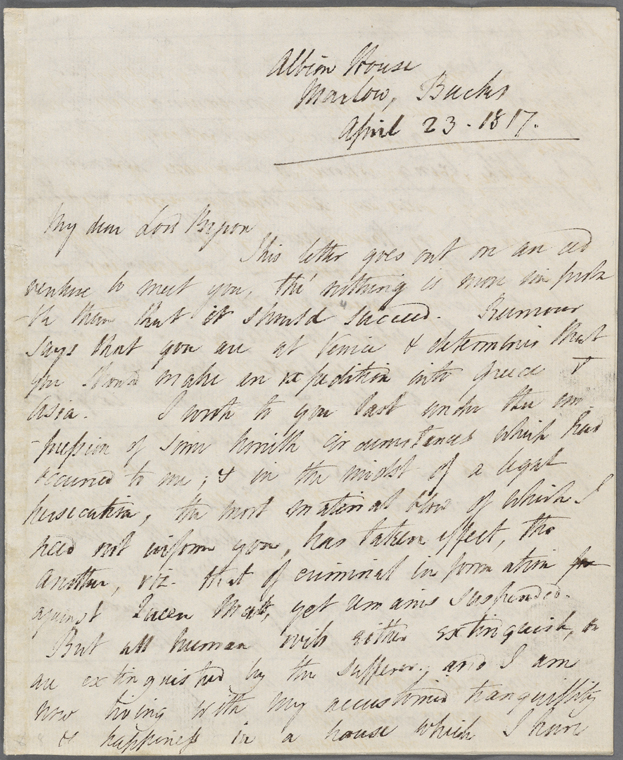 Albion House
Marlow, Bucks
April 23 - 1817.
My dear Lord Byron
This letter goes out on an ad
venture to meet you, tho' nothing is more improba
-ble than that it should succeed. Rumour
says that you are at Venice & determines that
you should make an expedition into Greece &
Asia. I wrote to you last under the im
-pression of some horrible circumstances which had
occurred to me; & in the midst of a legal
persecution, the most material blow of which I
need not inform you, has taken effect, tho
another, viz. that of criminal information
against Queen Mab, yet remains suspended.
But all human evils either extinguish, or
are extinguished by the sufferer; and I am
now living with my accustomed tranquillity
& happiness in a house which I have